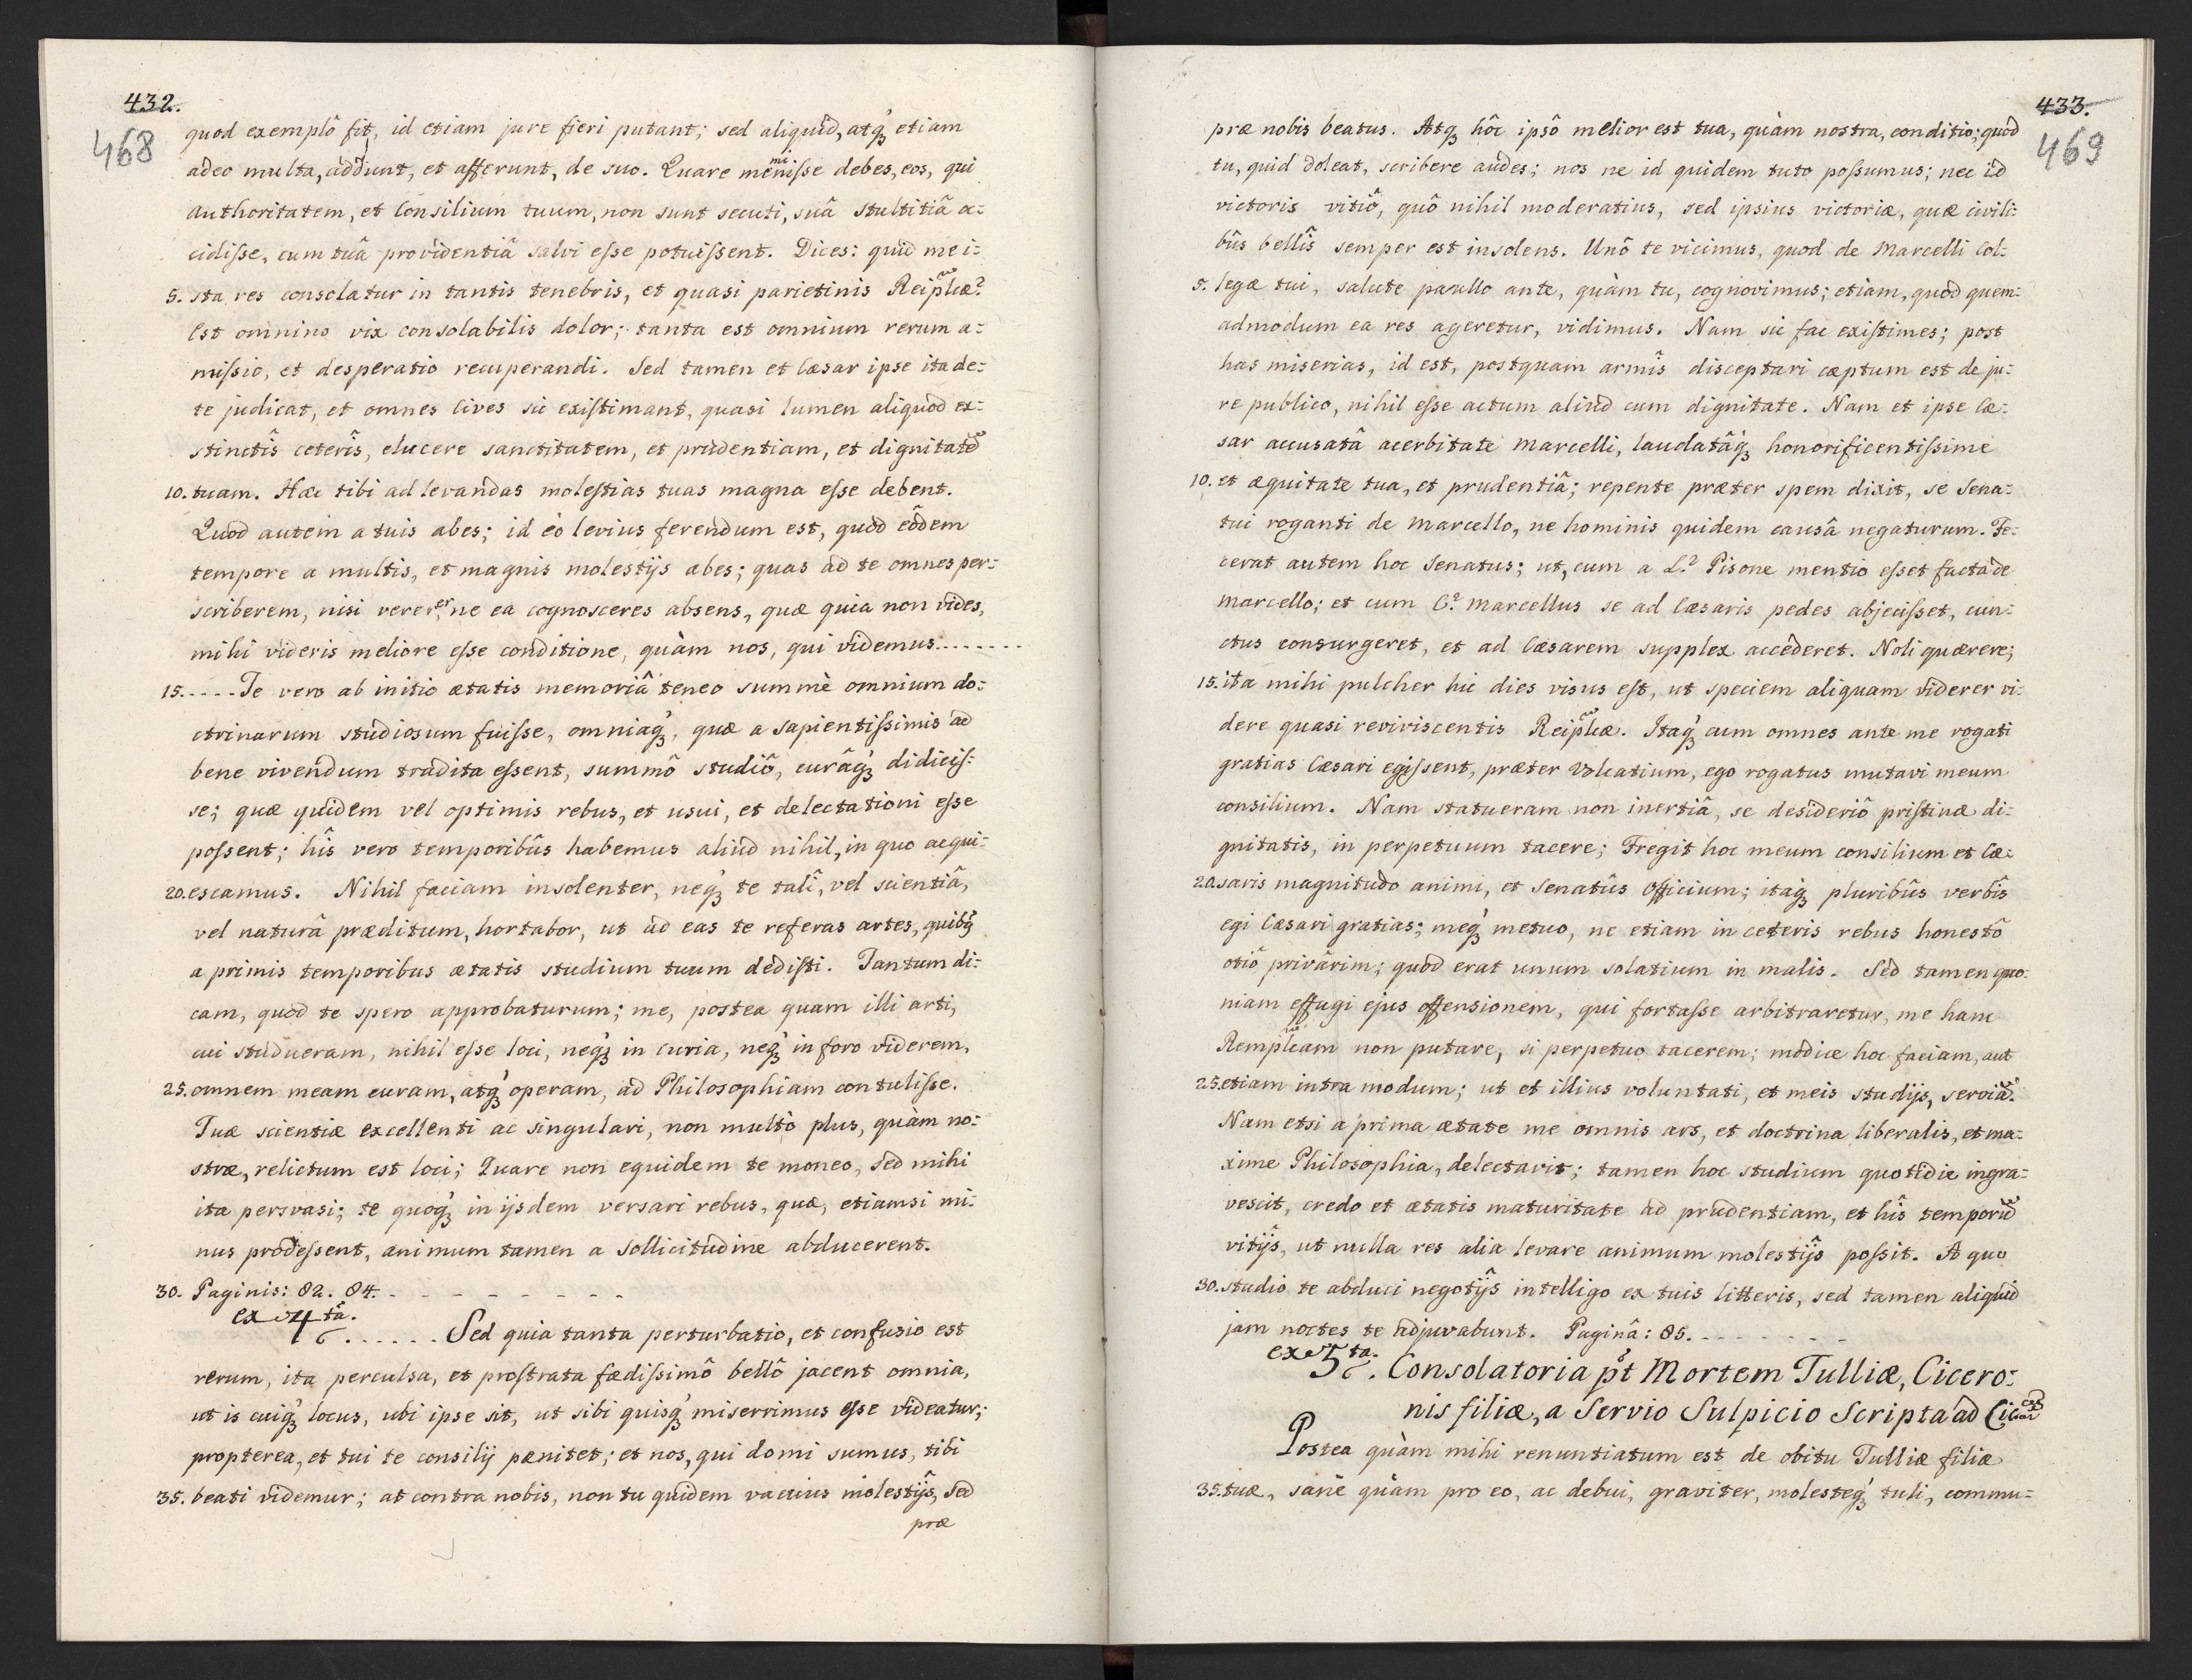 432.
468
quod exemplô fit, id etiam jure fieri putant; sed aliquid, atq́ꝫ etiam
adeo multa, addunt, et afferunt, de suo. Quare meminisse debes, eos, qui
authoritatem, et Consilium tuum, non sunt secuti, suâ stultitiâ ce=
cidisse, cum tuâ providentiâ salvi esse potuissent. Dices: quid me i=
5. sta res consolatur in tantis tenebris, et quasi parietinis Reiplcæ?
Est omnino vix consolabilis dolor; tanta est omnium rerum a=
missio, et desperatio recuperandi. Sed tamen et Cæsar ipse ita de=
te judicat, et omnes Cives sic existimant, quasi lumen aliquod ex=
stinctîs ceterîs, elucere sanctitatem, et prudentiam, et dignitatẽ
10. tuam. Hæc tibi ad levandas molestias tuas magna esse debent.
Quod autem a tuis abes; id eò levius ferendum est, quòd eôdem
tempore a multis, et magnis molestijs abes; quas ad te omnes per=
scriberem, nisi vererer, ne ea cognosceres absens, quæ quia non vides,
mihi videris meliore esse conditione, quàm nos, qui videmus........
15. ..... Te vero ab initio ætatis memoriâ teneo summè omnium do=
ctrinarum studiosum fuisse, omniaq́ꝫ, quæ a sapientissimis ad
bene vivendum tradita essent, summô studiô, curâq́ꝫ didicis=
se; quæ quidem vel optimis rebus, et usui, et delectationi esse
possent; hîs vero temporibûs habemus aliud nihil, in quo acqui=
20. escamus. Nihil faciam insolenter, neq́ꝫ te talî, vel scientiâ,
vel naturâ præditum, hortabor, ut ad eas te referas artes, quibꝫ
a primis temporibus ætatis studium tuum dedisti. Tantum di=
cam, quod te spero approbaturum; me, postea quam illi arti,
cui studueram, nihil esse loci, neq́ꝫ in Curia, neq́ꝫ in foro viderem,
25. omnem meam curam, atq́ꝫ operam, ad Philosophiam contulisse.
Tuæ scientiæ excellenti ac singulari, non multò plus, quàm no=
stræ, relictum est loci; Quare non equidem te moneo, sed mihi
ita persvasi; te quoq́ꝫ in ijsdem versari rebus, quæ, etiamsi mi=
nus prodessent, animum tamen a sollicitudine abducerent.
30. Paginis: 82. 84. - - - - - - - -
ex 4tâ.
...... Sed quia tanta perturbatio, et confusio est
rerum, ita perculsa, et prostrata fœdissimô bellô jacent omnia,
ut is cuiq́ꝫ locus, ubi ipse sit, ut sibi quisq́ꝫ miserrimus esse videatur;
propterea, et tui te consilij pœnitet; et nos, qui domi sumus, tibi
35. beati videmur; at contra nobis, non tu quidem vacuus molestijs, sed
præ
433.
469
præ nobis beatus. Atqꝫ hôc ipsô melior est tua, quàm nostra, conditio; quòd
tu, quid doleat, scribere audes; nos ne id quidem tuto possumus; nec id
victoris vitiô, quô nihil moderatius, sed ipsius victoriæ, quæ civili=
bûs bellîs semper est insolens. Unô te vicimus, quod de Marcelli Col=
5. legæ tui, salute paullo ante, quàm tu, cognovimus; etiam, quòd quem=
admodum ea res ageretur, vidimus. Nam sic fac existimes; post
has miserias, id est, postquam armîs disceptari cœptum est de ju=
re publico, nihil esse actum aliud cum dignitate. Nam et ipse Cæ=
sar accusatâ acerbitate Marcelli, laudatâq́ꝫ honorificentissime
10. et æquitate tua, et prudentiâ; repente præter spem dixit, se Sena=
tui roganti de Marcello, ne hominis quidem causâ negaturum. Fe=
cerat autem hoc Senatus; ut, cum a L.º Pisone mentio esset facta de
Marcello; et cum C.º Marcellus se ad Cæsaris pedes abjecisset, cun=
ctus consurgeret, et ad Cæsarem supplex accederet. Noli quærere;
15. ita mihi pulcher hic dies visus est, ut speciem aliquam viderer vi=
dere quasi reviviscentis Reiplcæ. Itaq́ꝫ cum omnes ante me rogati
gratias Cæsari egissent, præter Volcatium, ego rogatus mutavi meum
consilium. Nam statueram non inertiâ, se desideriô pristinæ di=
gnitatis, in perpetuum tacere; Fregit hoc meum consilium et Cæ=
20. saris magnitudo animi, et Senatûs officium; itaq́ꝫ pluribûs verbîs
egi Cæsari gratias; meq́ꝫ metuo, ne etiam in ceteris rebus honestô
otiô privârim; quòd erat unum solatium in malis. Sed tamen quo=
niam effugi ejus offensionem, qui fortasse arbitraretur, me hanc
Remplcam non putare, si perpetuo tacerem; modice hoc faciam, aut
25. etiam intra modum; ut et illius voluntati, et meis studijs, serviã.
Nam etsi a prima ætate me omnis ars, et doctrina liberalis, et ma=
xime Philosophia, delectavit; tamen hoc studium quotidie ingra=
vescit, credo et ætatis maturitate ad prudentiam, et hîs temporũ
vitijs, ut nulla res alia levare animum molestijs possit. A quo
30. studio te abduci negotijs intelligo ex tuis litteris, sed tamen aliquid
jam noctes te adjuvabunt. Paginâ: 85. - - - - - - -
ex 5ta. Consolatoria pôt Mortem Tulliæ, Cicero=
nis filiæ, a Servio Sulpicio Scripta ad
Postea quàm mihi renuntiatum est de obitu Tulliæ filiæ
35. tuæ, sanè quàm pro eo, ac debui, graviter, molesteq́ꝫ tuli, commu=